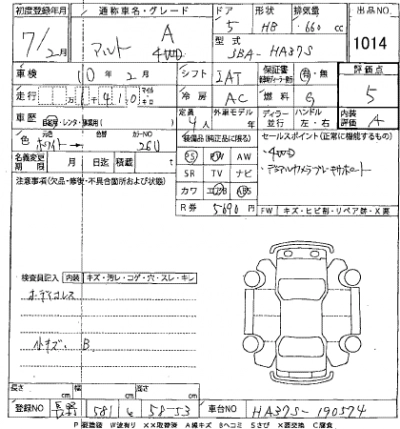 初度登録年月 通称車名・グレード ドア 形状 排気量 出品NO.
7/2月 アルト A 4WD 5 HB 660 cc 1014
型式 3BA-HA37S
車検 10年2月 シフト IAT 保証書 有・無 評価点
走行 410 マイル キロ 冷房 AC 燃料 G 5
車歴 レンタ 定員 4人 外車モデル 年 ディラー 並行 ハンドル 左・右 内装評価 A
色 ホワイト→ カラーNO 26U 装備品(純正品に限る) セールスポイント(正常に機能するもの)
名義変更期限 月 日迄 積載 t PS PW AW ・4WD
注意事項(欠品・修復・不具合箇所および状態) SR TV ナビ ・デュアルカメラブレーキサポート
カワ エアB ABS
R券 5690円 FW キズ・ヒビ割・リペア跡・X要
検査員記入 内装 キズ・汚レ・コゲ・穴・スレ・キレ
オーディオレス
小キズ・B
長さ cm 幅 cm 高さ cm
登録NO 長野 581 58-53 車台NO HA37S-190574
P 要塗装 W波有り XX取替済 A線キズ Bヘコミ Sさび X要交換 C腐食